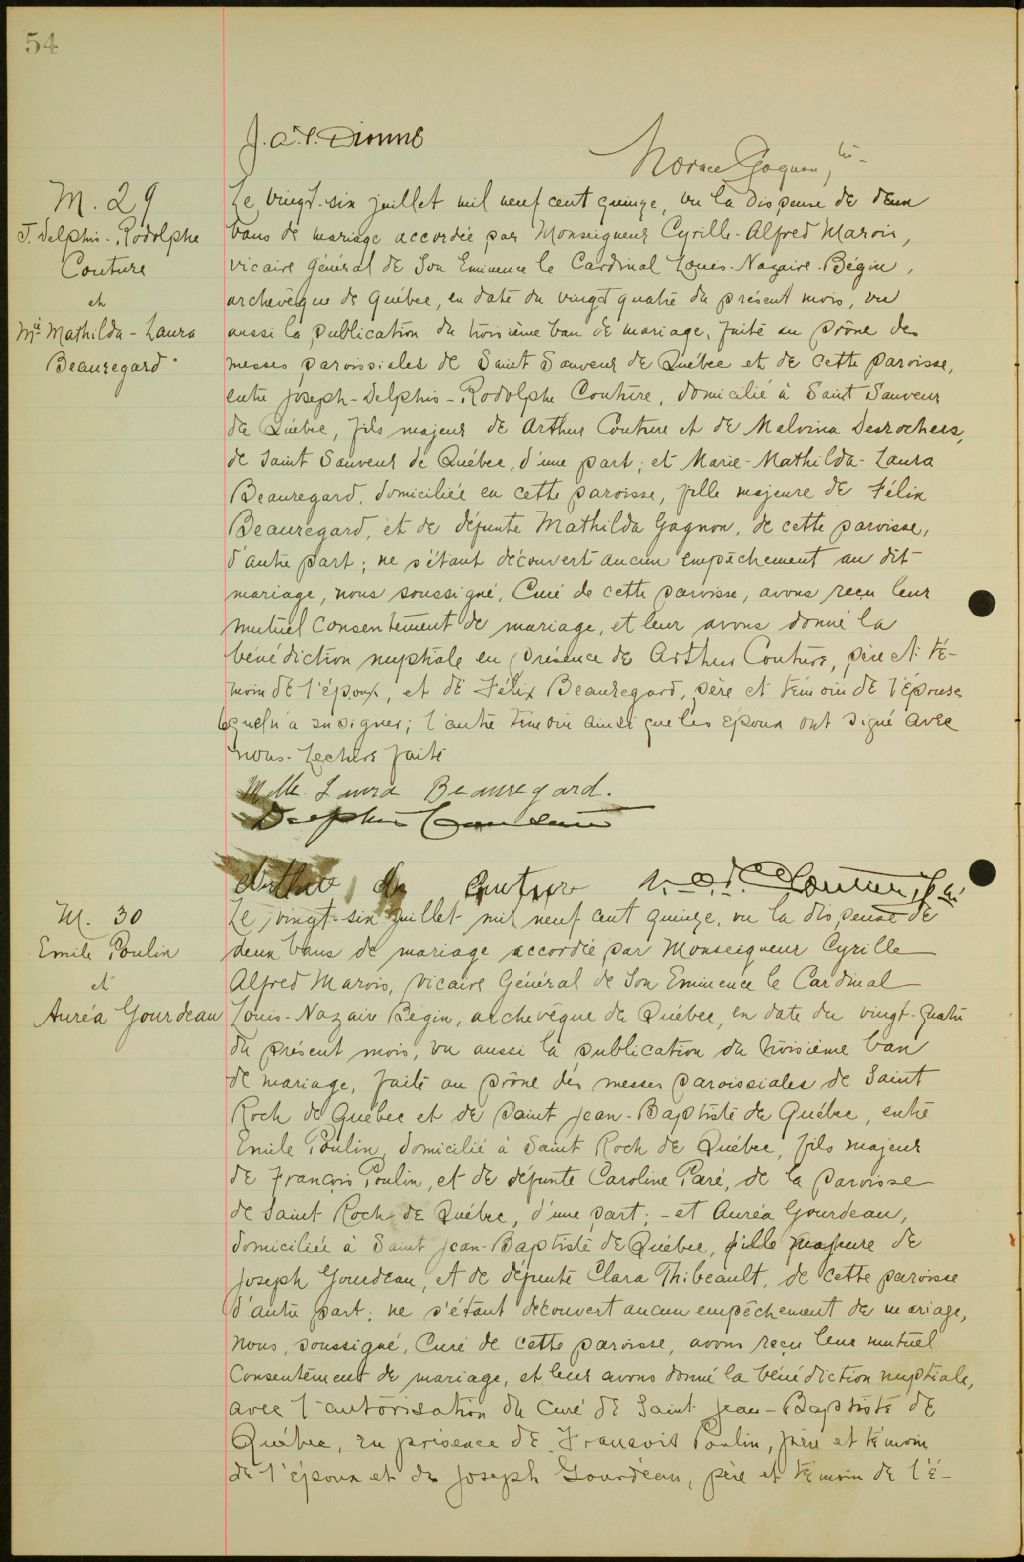 54
J. A. T. Dionne
Horace Gagnon,
M. 29
J. Delphis-Rodolphe
Couture
et
Mie Mathilda-Laura
Beauregard
Le vingt-six juillet mil neuf cent quinze, vu la dispense de deux
bans de mariage accordée par Monseigneur Cyrille-Alfred Marois,
vicaire général de Son Eminence le Cardinal Louis-Nazaire Bégin,
archevêque de Québec, en date du vingt quatre du présent mois, vu
aussi la publication du troisième ban de mariage, faite au prône des
messes paroissiales de Saint Sauveur de Québec et de cette paroisse,
entre Joseph-Delphis-Rodolphe Couture, domicilié à Saint Sauveur
de Québec, fils majeur de Arthur Couture et de Malvina Desrochers,
de Saint Sauveur de Québec, d'une part; et Marie-Mathilda-Laura
Beauregard, domiciliée en cette paroisse, fille majeure de Félix
Beauregard, et de défunte Mathilda Gagnon, de cette paroisse,
d'autre part; ne s'étant découvert aucun empêchement au dit
mariage, nous soussigné, Curé de cette paroisse, avons reçu leur
mutuel consentement de mariage, et leur avons donné la
bénédiction nuptiale en présence de Arthur Couture, père et té-
moin de l'époux, et de Félix Beauregard, père et témoin de l'épouse
lequel n'a su signer; l'autre témoin ainsi que les époux ont signé avec
nous. Lecture faite
Mlle Laura Beauregard.
Delphis Couture
Arthur Couture
M. 30
Emile Poulin
et
Auréa Gourdeau
Le vingt-six juillet mil neuf cent quinze, vu la dispense de
deux bans de mariage accordée par Monseigneur Cyrille
Alfred Marois, Vicaire Général de Son Eminence le Cardinal
Louis-Nazaire Bégin, archevêque de Québec, en date du vingt-quatre
du présent mois, vu aussi la publication du troisième ban
de mariage, faite au prône des messes paroissiales de Saint
Roch de Québec et de Saint Jean-Baptiste de Québec, entre
Emile Poulin, domicilié à Saint Roch de Québec, fils majeur
de François Poulin, et de défunte Caroline Paré, de la paroisse
de Saint Roch de Québec, d'une part; - et Auréa Gourdeau,
domiciliée à Saint Jean-Baptiste de Québec, fille majeure de
Joseph Gourdeau, et de défunte Clara Thibeault, de cette paroisse
d'autre part; ne s'étant découvert aucun empêchement de mariage,
nous, soussigné, Curé de cette paroisse, avons reçu leur mutuel
Consentement de mariage, et leur avons donné la bénédiction nuptiale,
avec l'autorisation du Curé de Saint Jean-Baptiste de
Québec, en présence de François Poulin, père et témoin
de l'époux et de Joseph Gourdeau, père et témoin de l'é-